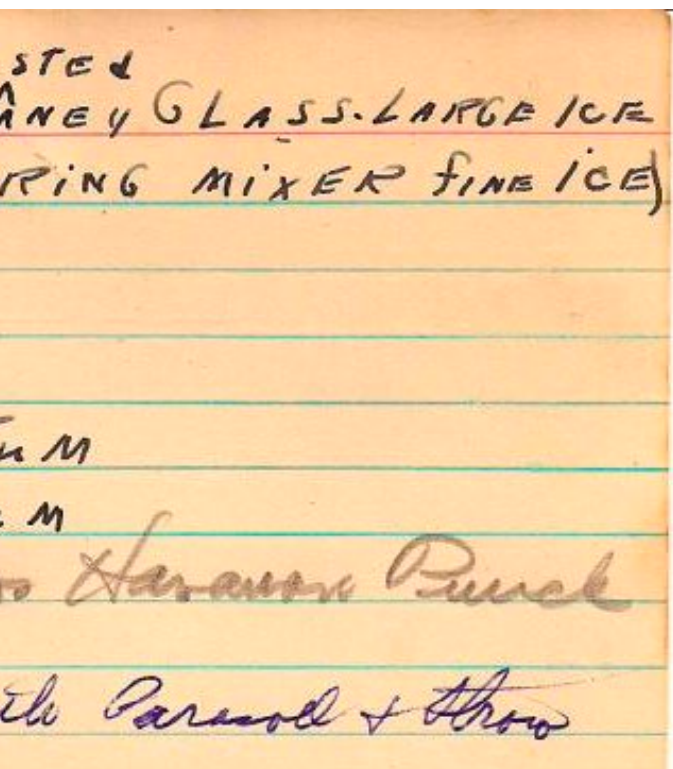 STEd
ANEY GLASS-LARGE ICE
RiNG MiXER fiNE iCE)
uM
M
os Havanon Punch
ith Parasoll & Straw